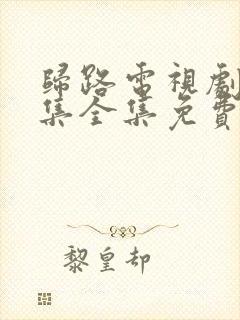 歸路電視劇
集全集免費
黎皇却